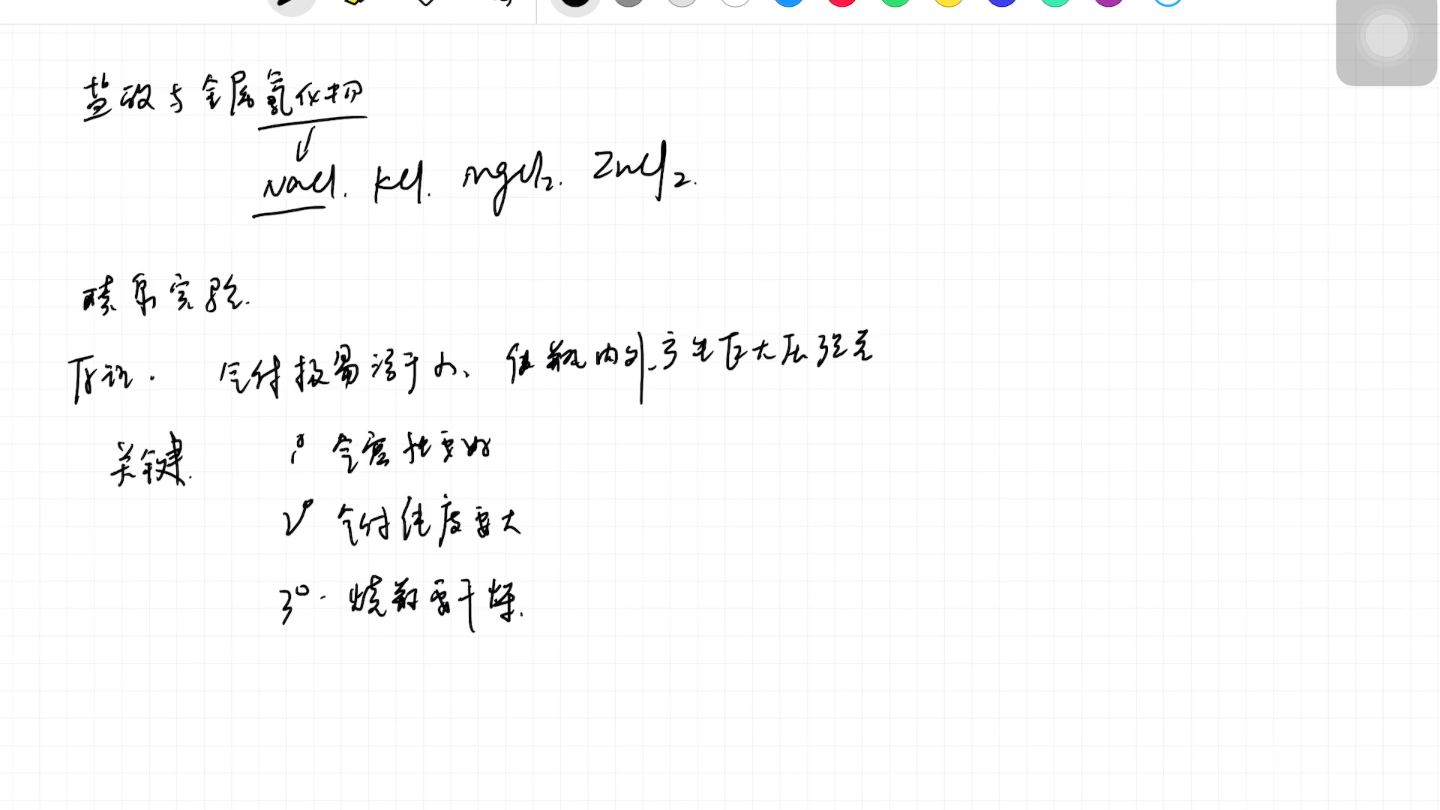 盐酸与金属氯化物
NaCl. KCl. MgCl₂. ZnCl₂.
喷泉实验.
原理. 气体极易溶于水、使瓶内外产生巨大压强差
关键. 1° 气密性要好
2° 气体纯度要大
3°. 烧瓶要干燥.